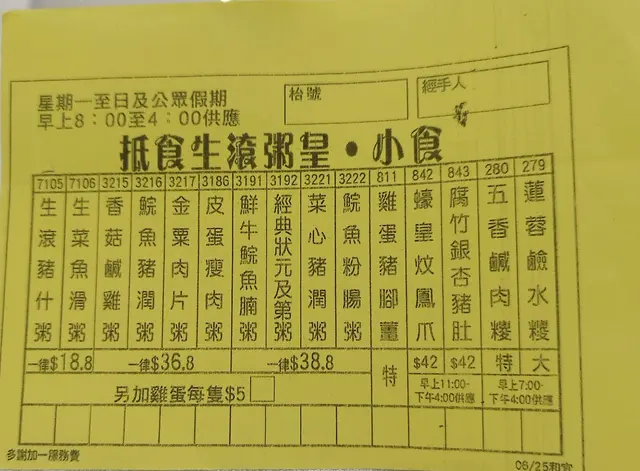 星期一至日及公眾假期
早上8:00至4:00供應
枱號
經手人
抵食生滾粥皇•小食
7105 7106 3215 3216 3217 3186 3191 3192 3221 3222 811 842 843 280 279
生滾豬什粥
生菜魚滑粥
香菇鹹雞粥
鯇魚豬潤粥
金粟肉片粥
皮蛋瘦肉粥
鮮牛鯇魚腩粥
經典狀元及第粥
菜心豬潤粥
鯇魚粉腸粥
雞蛋豬腳薑
蠔皇炆鳳爪
腐竹銀杏豬肚
五香鹹肉糉
蓮蓉鹼水糉
一律$18.8 一律$36.8 一律$38.8 特 $42 $42 特 大
早上11:00-
下午4:00供應
早上7:00-
下午4:00供應
另加雞蛋每隻$5
多謝加一服務費
06/25和宜